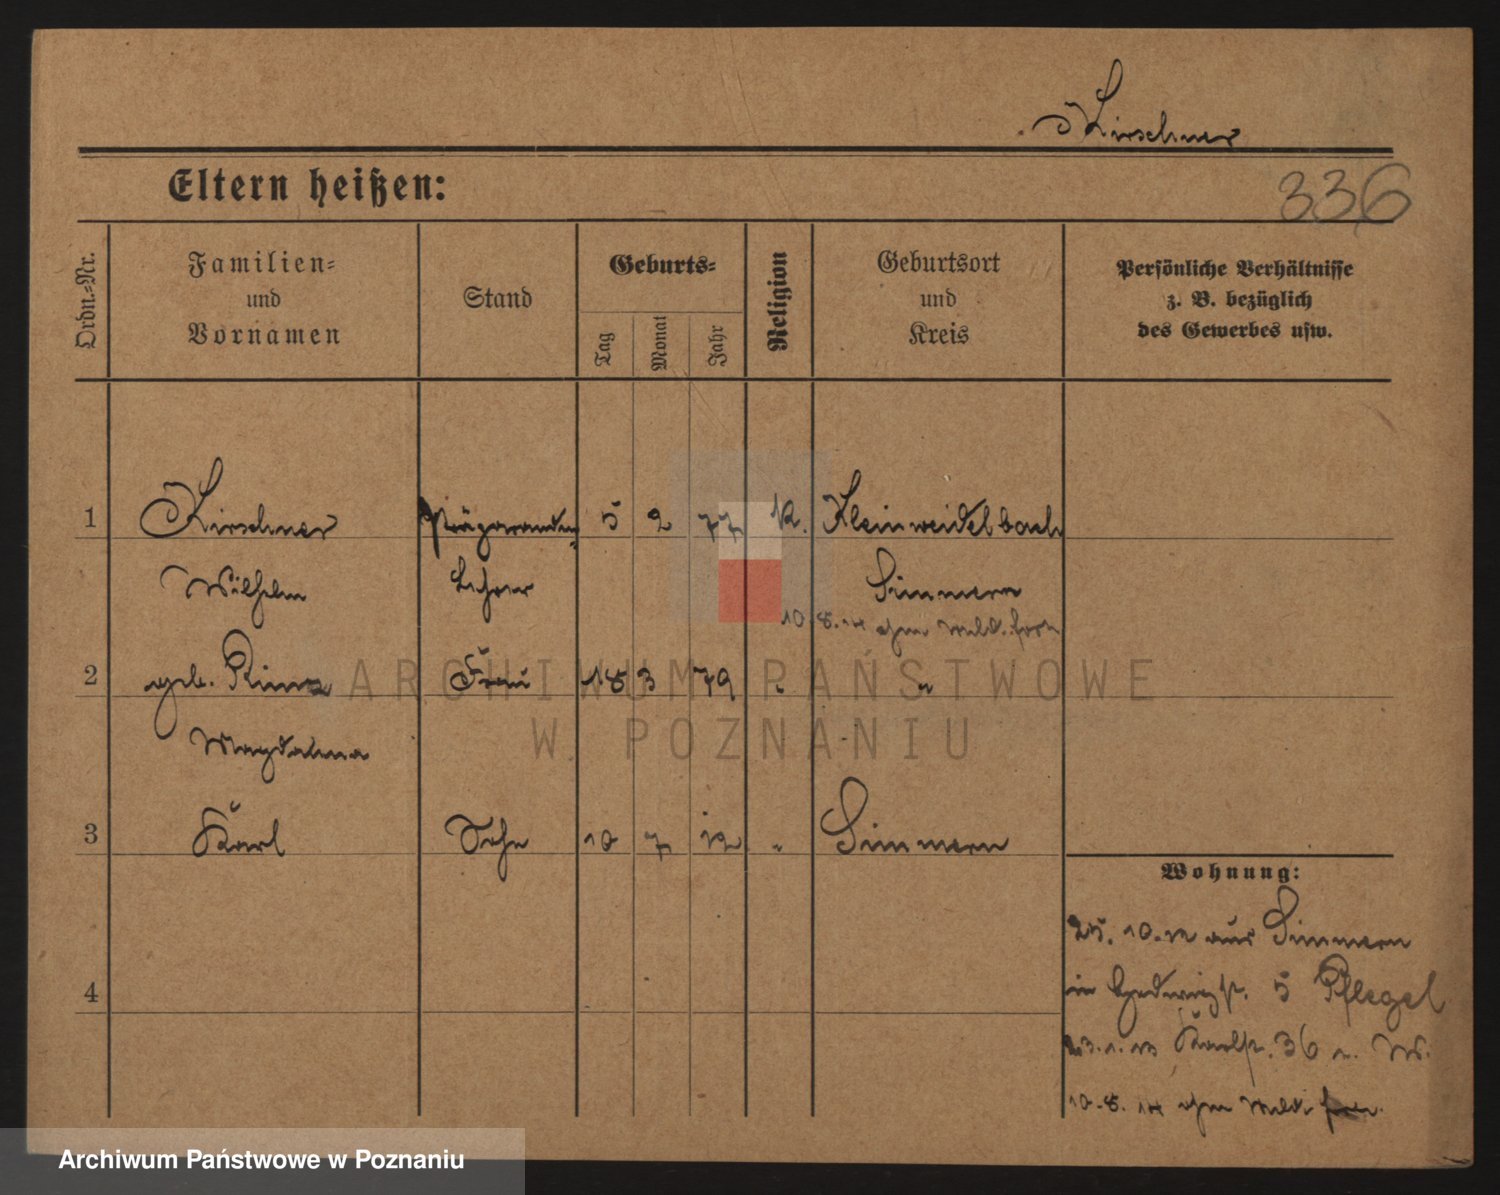 Kirschner
Eltern heißen:
336
Ordn.-Nr.
Familien-
und
Vornamen
Stand
Geburts-
Tag
Monat
Jahr
Religion
Geburtsort
und
Kreis
Persönliche Verhältnisse
z. B. bezüglich
des Gewerbes usw.
1
Kirschner
Präparanden-
5
2
77
k.
Kleinweidelbach
Wilhelm
Lehrer
Simmern
10.8.14 ohne Meld. fort
2
geb.
Frau
18
3
79
"
"
Magdalena
3
Karl
Sohn
10
7
12
"
Simmern
Wohnung:
25. 10. 12 aus Simmern
in Hedwigst. 5 Pflegel
4
23.1.13 Karlst. 36 n. W.
10.8.14 ohne Meld.
ARCHIWUM PAŃSTWOWE
W POZNANIU
Archiwum Państwowe w Poznaniu